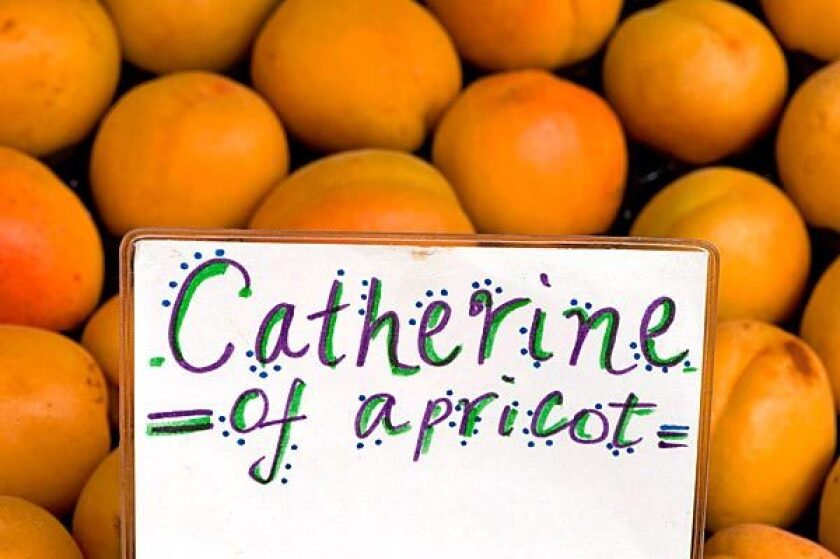 Catherine
= of apricot =